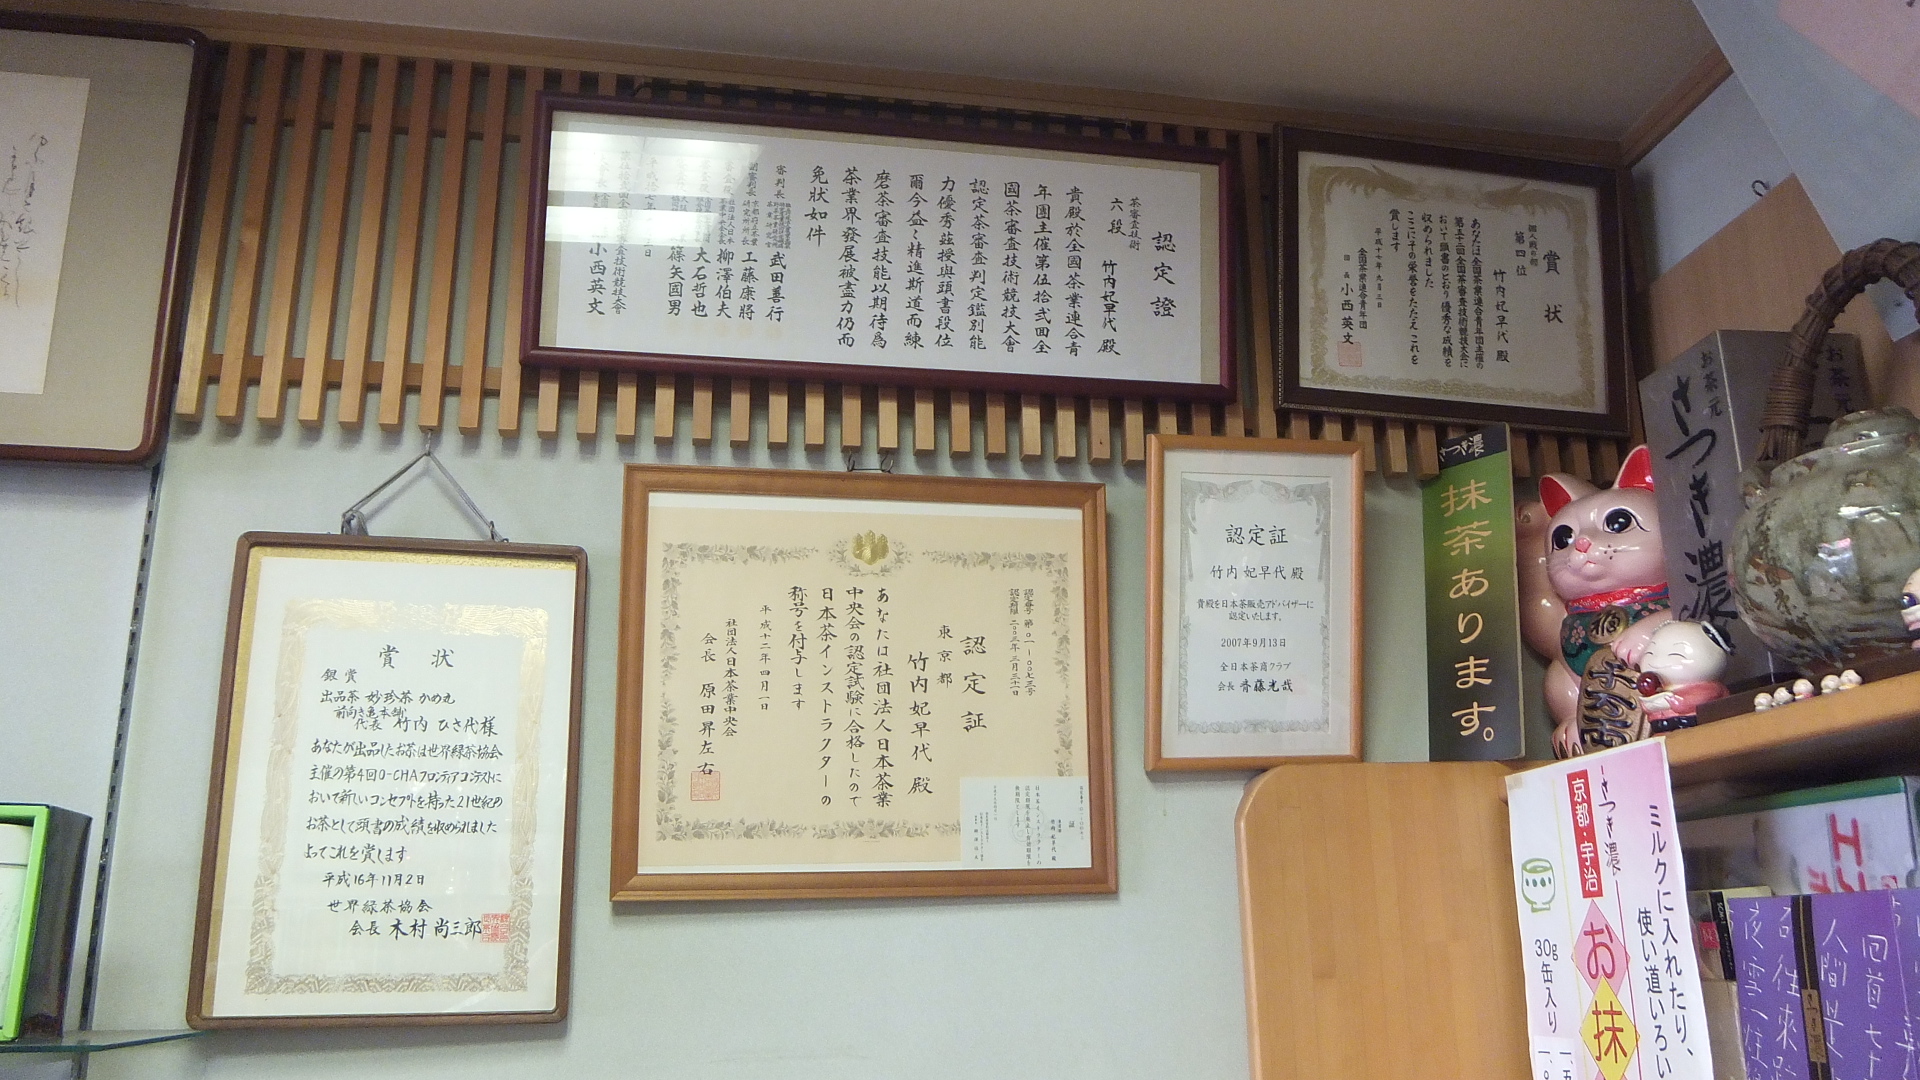 認定證
茶審査技術
六段
竹内妃早代 殿
貴殿於全國茶業連合青
年團主催第伍拾弐回全
國茶審査技術競技大會
認定茶審査判定鑑別能
力優秀茲授與頭書段位
爾今益々精進斯道而練
磨茶審査技能以期待爲
茶業界發展被盡力仍而
免状如件
審判長
武田善行
副審判長
工藤康將
柳澤伯夫
大石哲也
篠矢國男
小西英文
賞状
個人戦の部
第四位
竹内妃早代 殿
あなたは全国茶業連合青年団主催の
第五十二回全国茶審査技術競技大会に
おいて頭書のとおり優秀な成績を
収められました
ここにその栄誉をたたえ これを
賞します
平成十七年九月三日
全国茶業連合青年団
団長 小西英文
賞状
銀賞
出品茶 妙珍茶 かめ丸
前向き亀本舗
代表 竹内 ひさ代様
あなたが出品したお茶は世界緑茶協会
主催の第4回O-CHAフロンティアコンテストに
おいて新しいコンセプトを持った21世紀の
お茶として頭書の成績を収められました
よってこれを賞します
平成16年11月2日
世界緑茶協会
会長 木村 尚三郎
認定番号 第〇一-〇〇七三号
認定期限 二〇〇三年三月三十一日
認定証
東京都
竹内妃早代 殿
あなたは社団法人日本茶業
中央会の認定試験に合格したので
日本茶インストラクターの
称号を付与します
平成十二年四月一日
社団法人日本茶業中央会
会長 原田昇左右
認定証
竹内 妃早代 殿
貴殿を日本茶販売アドバイザーに
認定いたします。
2007年9月13日
全日本茶商クラブ
会長 斉藤光哉
さつき濃
抹茶あります。
お茶元
さつき濃
ミルクに入れたり、
使い道いろい
さつき濃
京都・宇治
お抹
30g缶入り